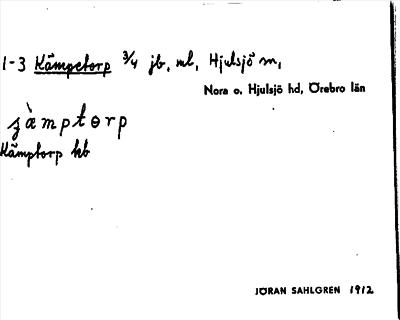 1-3 Kämpetorp 3/4 jb, ml, Hjulsjö sn,
Nora o. Hjulsjö hd, Örebro län
Kämptorp kb
JÖRAN SAHLGREN 1912